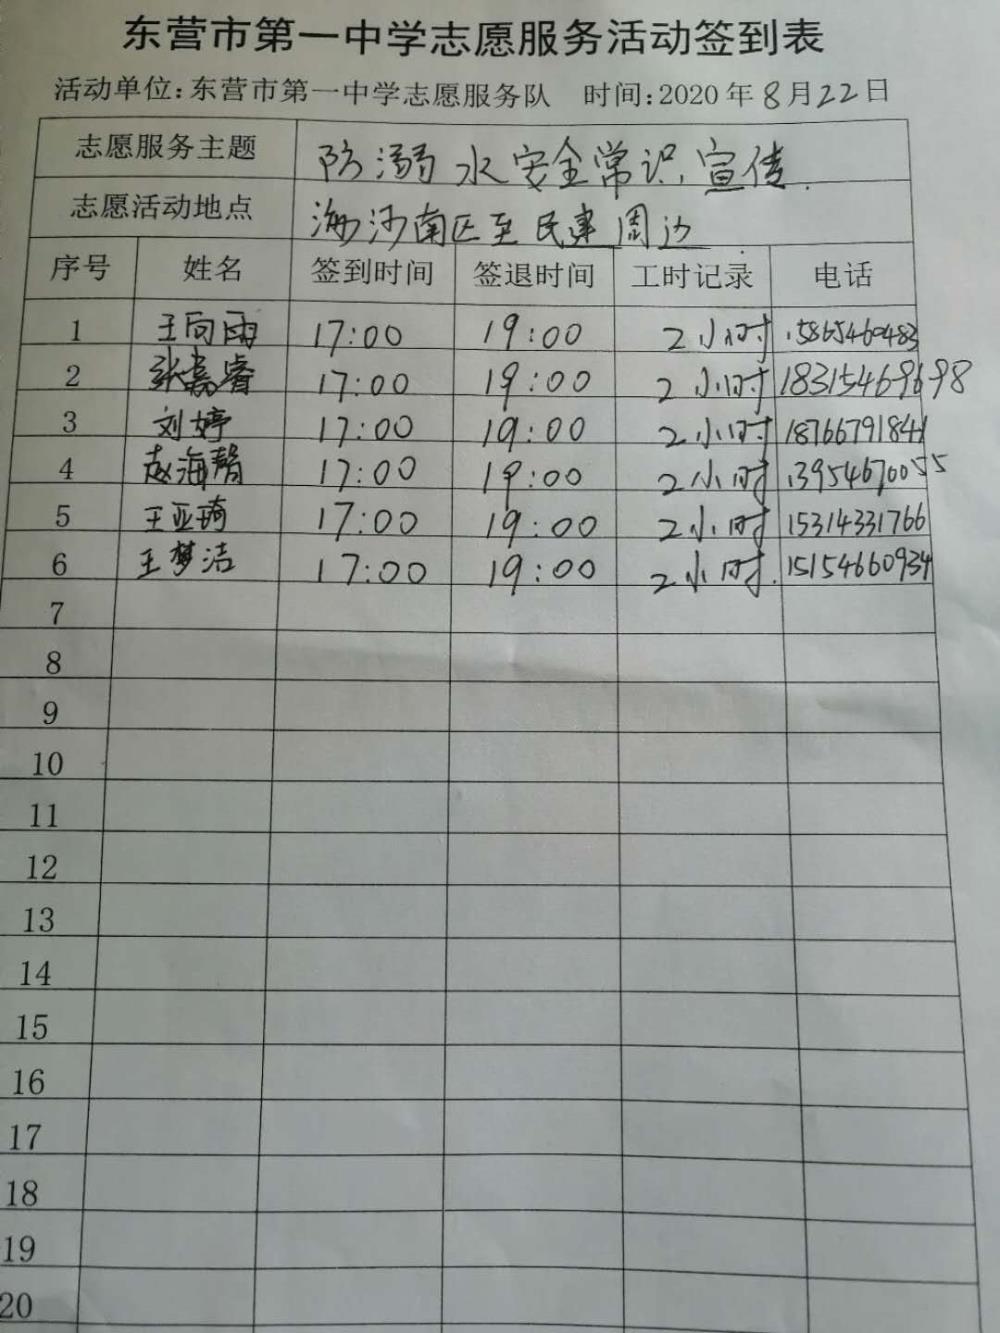 东营市第一中学志愿服务活动签到表
活动单位:东营市第一中学志愿服务队 时间:2020年8月22日
志愿服务主题 防溺水安全常识宣传.
志愿活动地点 海沙南区至民建周边
序号 姓名 签到时间 签退时间 工时记录 电话
1 王向雨 17:00 19:00 2小时 15865460483
2 张嘉睿 17:00 19:00 2小时 18315469698
3 刘婷 17:00 19:00 2小时 18766791841
4 赵海馨 17:00 19:00 2小时 13954670055
5 王亚琦 17:00 19:00 2小时 15314331766
6 王梦洁 17:00 19:00 2小时. 15154660934
7
8
9
10
11
12
13
14
15
16
17
18
19
20